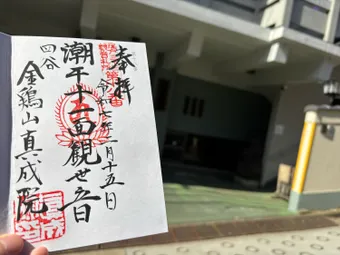 奉拝
令和七年一月十五日
潮干十一面観世音
四谷
金鶏山真成院